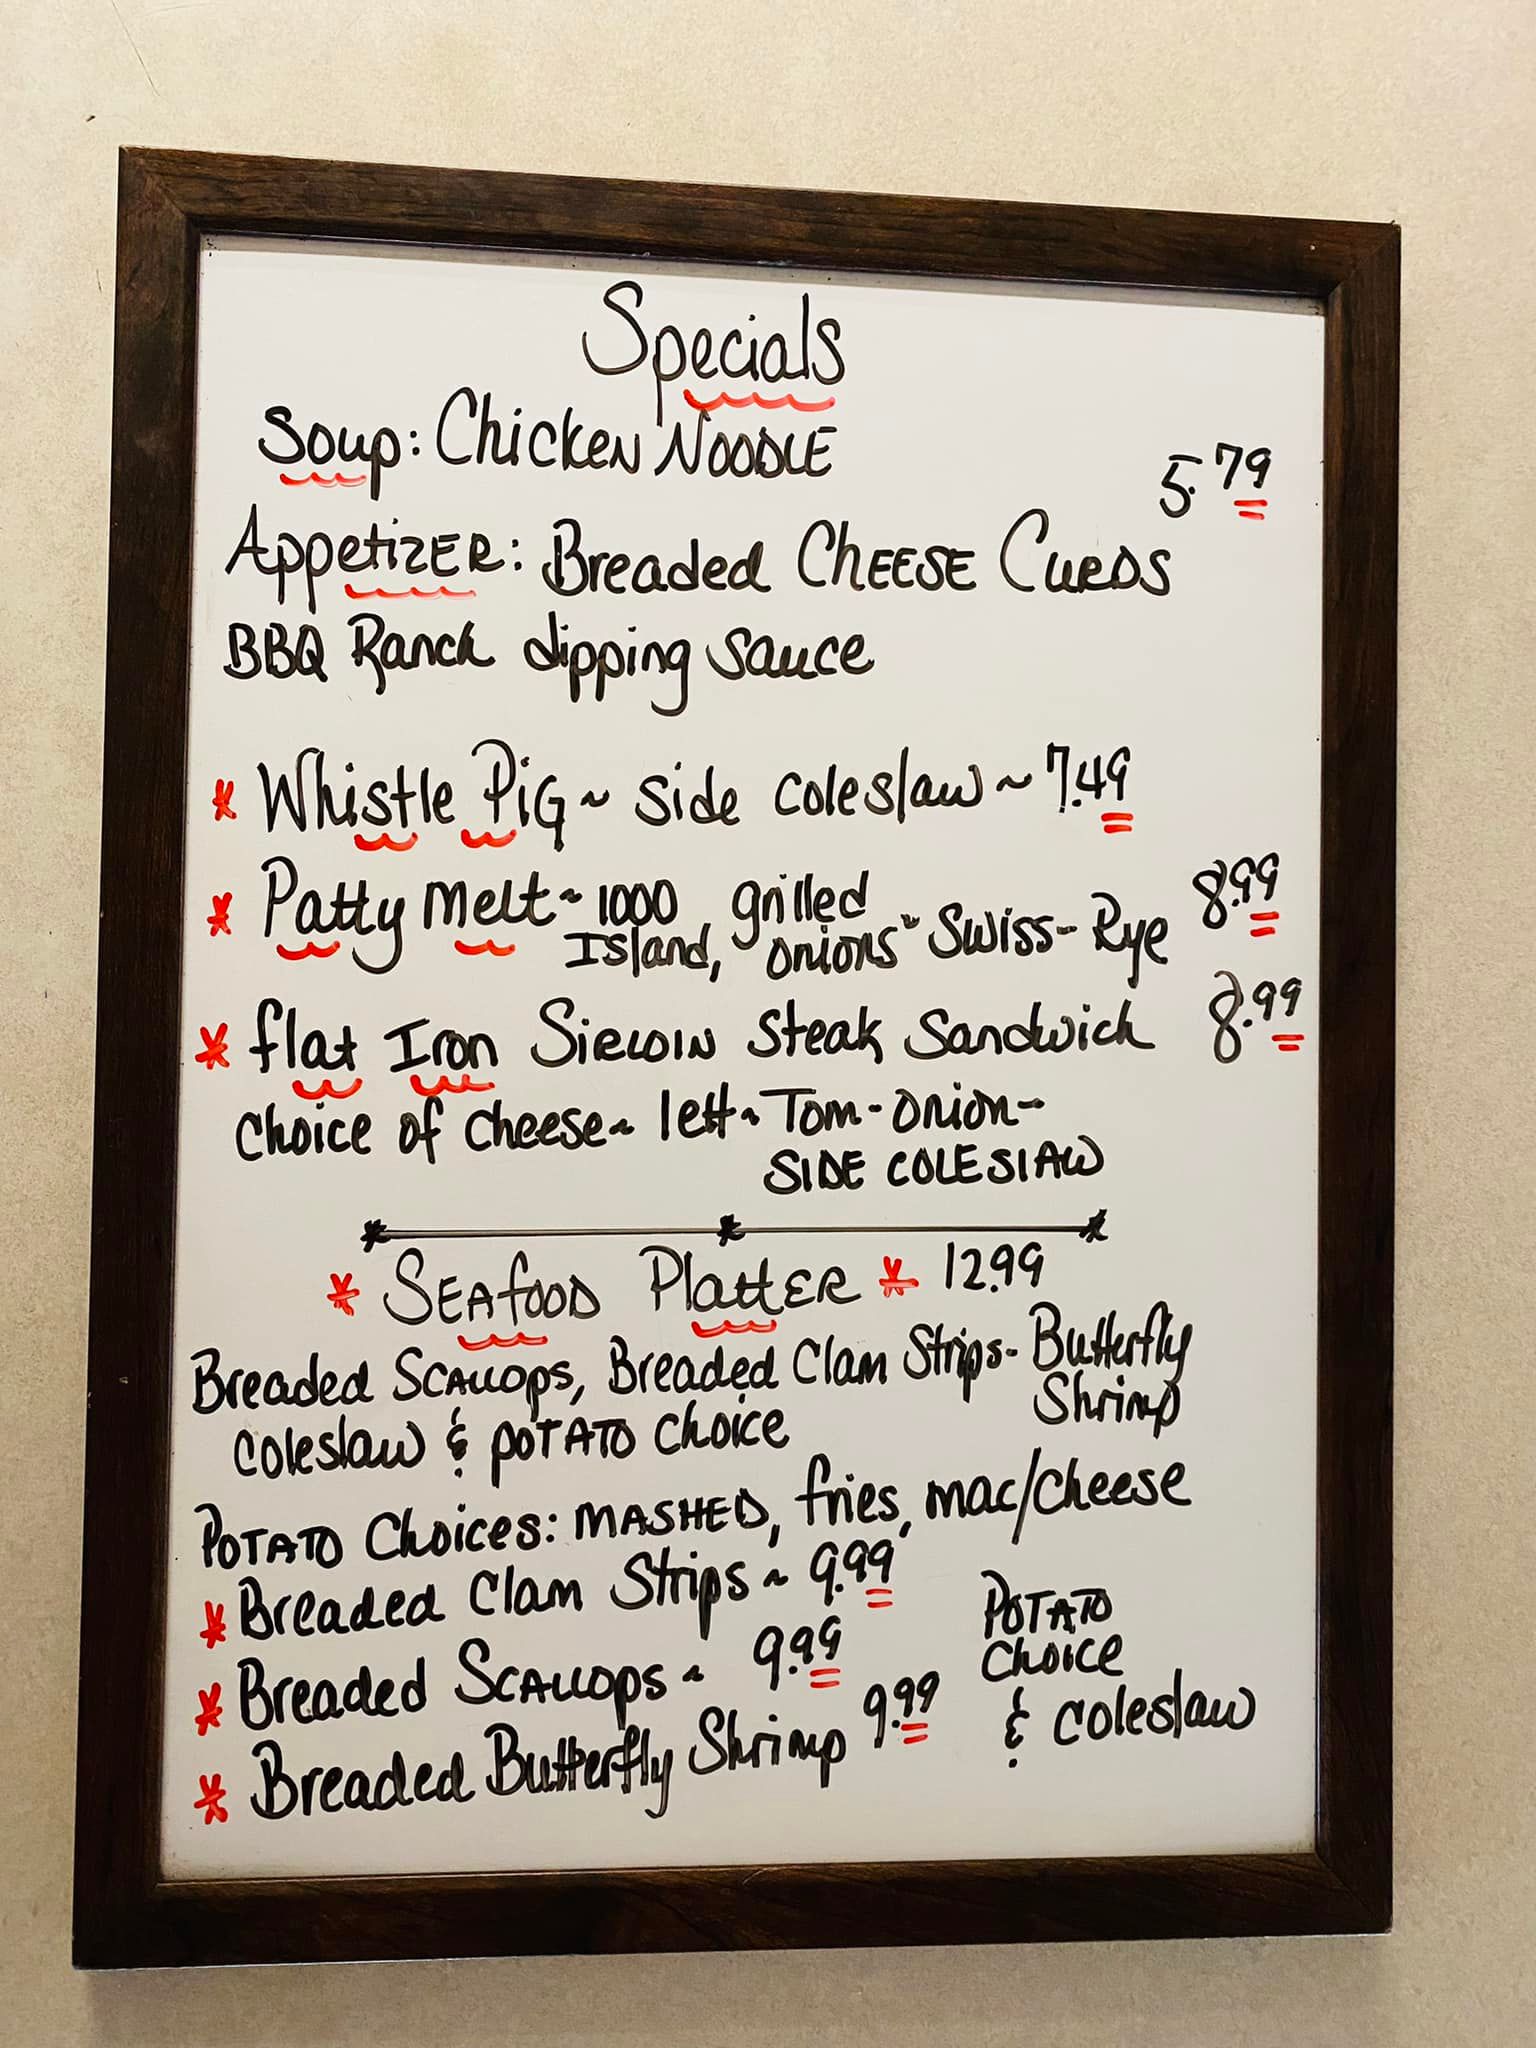 Specials
Soup: Chicken Noodle
5.79
Appetizer: Breaded Cheese Curds
BBQ Ranch dipping sauce
* Whistle Pig ~ side coleslaw ~ 7.49
* Patty Melt ~ 1000 Island, grilled onions ~ Swiss - Rye 8.99
* flat Iron Sirloin Steak Sandwich 8.99
Choice of cheese ~ lett ~ Tom - onion -
SIDE COLESlAW
* Seafood Platter * 12.99
Breaded Scallops, Breaded Clam Strips - Butterfly Shrimp
coleslaw & potato choice
Potato Choices: mashed, fries, mac/cheese
* Breaded Clam Strips ~ 9.99
* Breaded Scallops ~ 9.99
* Breaded Butterfly Shrimp 9.99
Potato
choice
& coleslaw